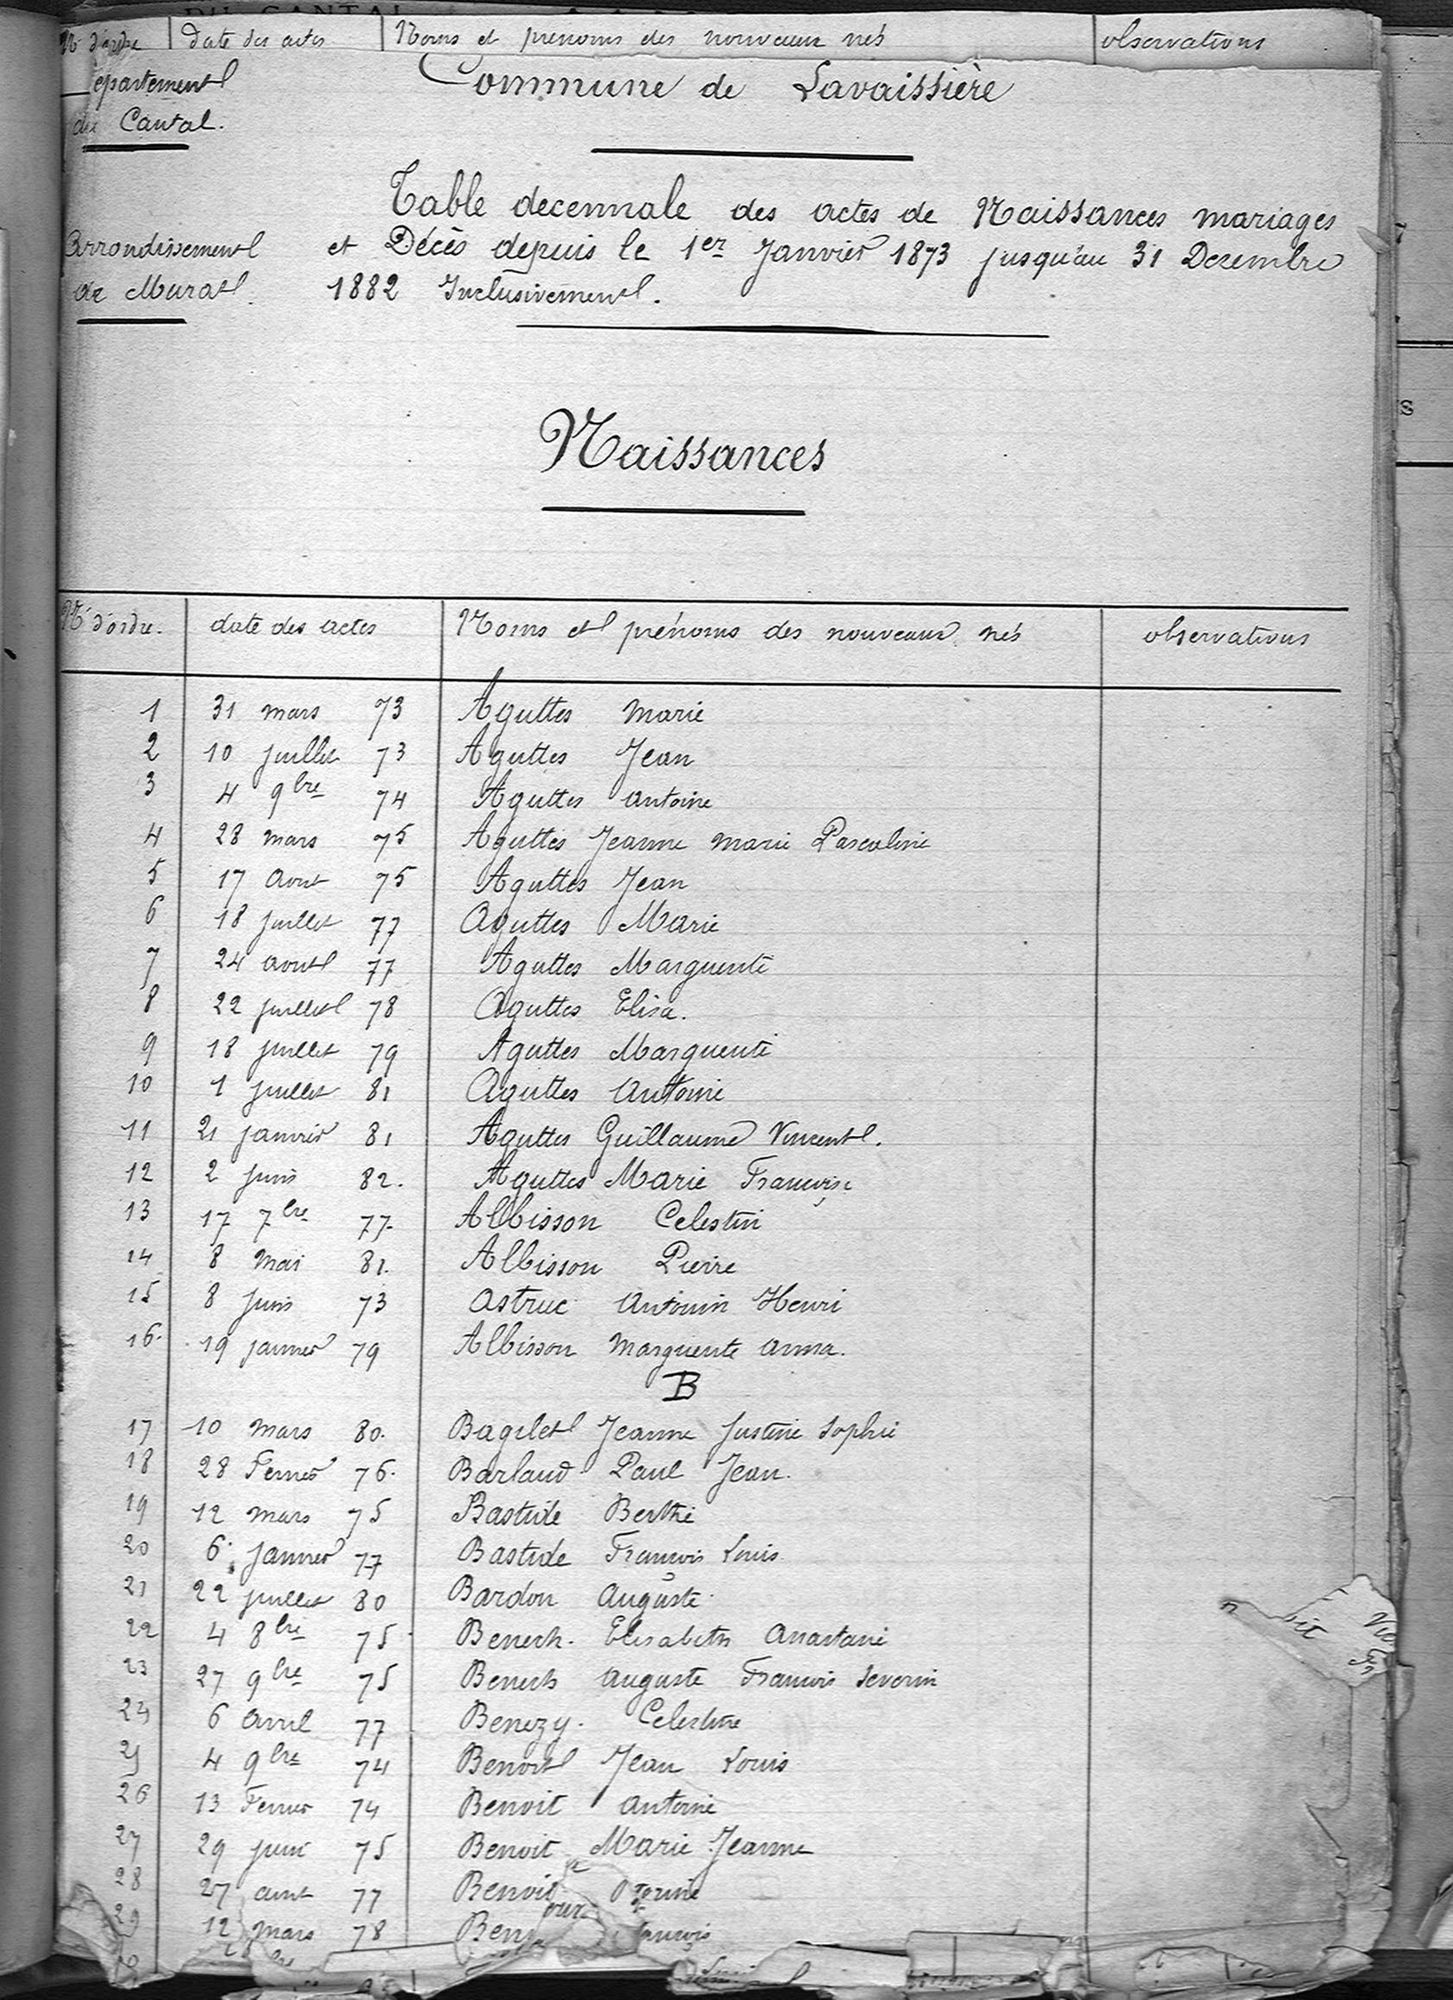 N° d'ordre date des actes Noms et prénoms des nouveaux nés observations
Département Commune de Lavaissière
du Cantal.
Table decennale des actes de Naissances mariages
Arrondissement et Décès depuis le 1er Janvier 1873 jusqu'au 31 Decembre
de Murat. 1882 Inclusivement.
Naissances
N° d'ordre. date des actes Noms et prénoms des nouveaux nés observations
1 31 mars 73 Aguttes Marie
2 10 juillet 73 Aguttes Jean
3 4 9bre 74 Aguttes Antoine
4 28 mars 75 Aguttes Jeanne Marie Pascaline
5 17 Aout 75 Aguttes Jean
6 18 juillet 77 Aguttes Marie
7 24 aout 77 Aguttes Marguerite
8 22 juillet 78 Aguttes Elisa.
9 18 juillet 79 Aguttes Marguerite
10 1 juillet 81 Aguttes Antoine
11 21 janvier 81 Aguttes Guillaume Vincent.
12 2 juin 82. Aguttes Marie Françoise
13 17 7bre 77. Albisson Celestin
14 8 mai 81. Albisson Pierre
15 8 juin 73 Astruc Antonin Henri
16. 19 janvier 79 Albisson Marguerite Anna.
B
17 10 mars 80. Bagilet Jeanne Justine Sophie
18 28 Fevrier 76. Barlaud Paul Jean.
19 12 mars 75 Bastide Berthe
20 6 janvier 77 Bastide François Louis
21 22 juillet 80 Bardon Auguste
22 4 8bre 75 Benech. Elisabeth Anastasie
23 27 9bre 75 Benech Auguste François Severin
24 6 avril 77 Benezy. Celestine
25 4 9bre 74 Benoit Jean Louis
26 13 Fevrier 74 Benoit Antoine
27 29 juin 75 Benoit Marie Jeanne
28 27 aout 77 Benoit
29 12 mars 78